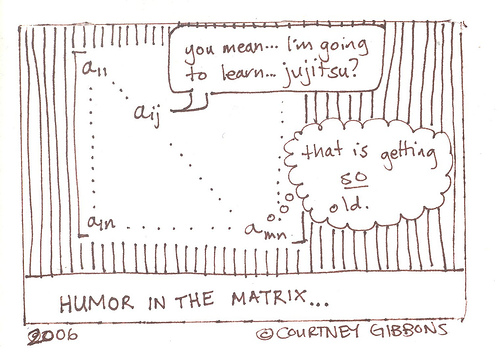 you mean... I'm going
to learn... jujitsu?
a11
aij
that is getting
so
old.
a1n
amn
HUMOR IN THE MATRIX...
2006
©COURTNEY GIBBONS